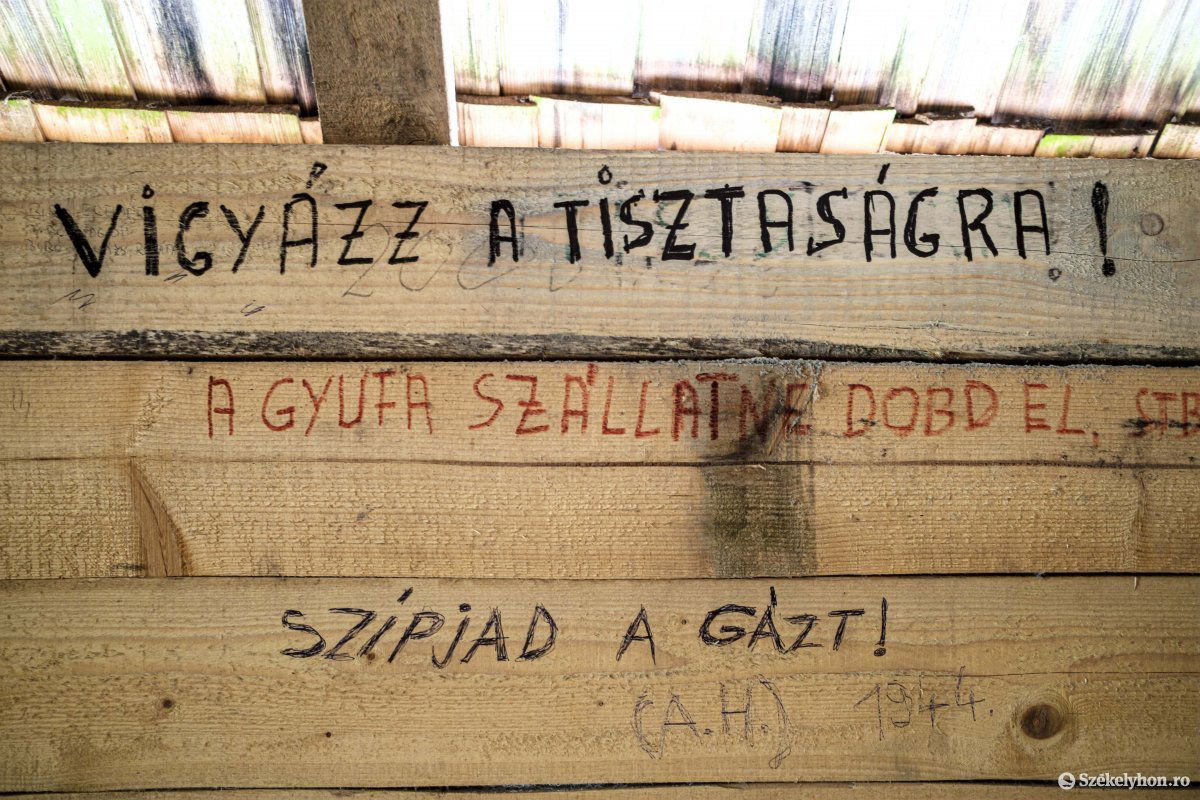 VIGYÁZZ A TISZTASÁGRA!
A GYUFA SZÁLLATNE DOBD EL,
SZÍPJAD A GÁZT!
(A.H.) 1944.
Székelyhon.ro